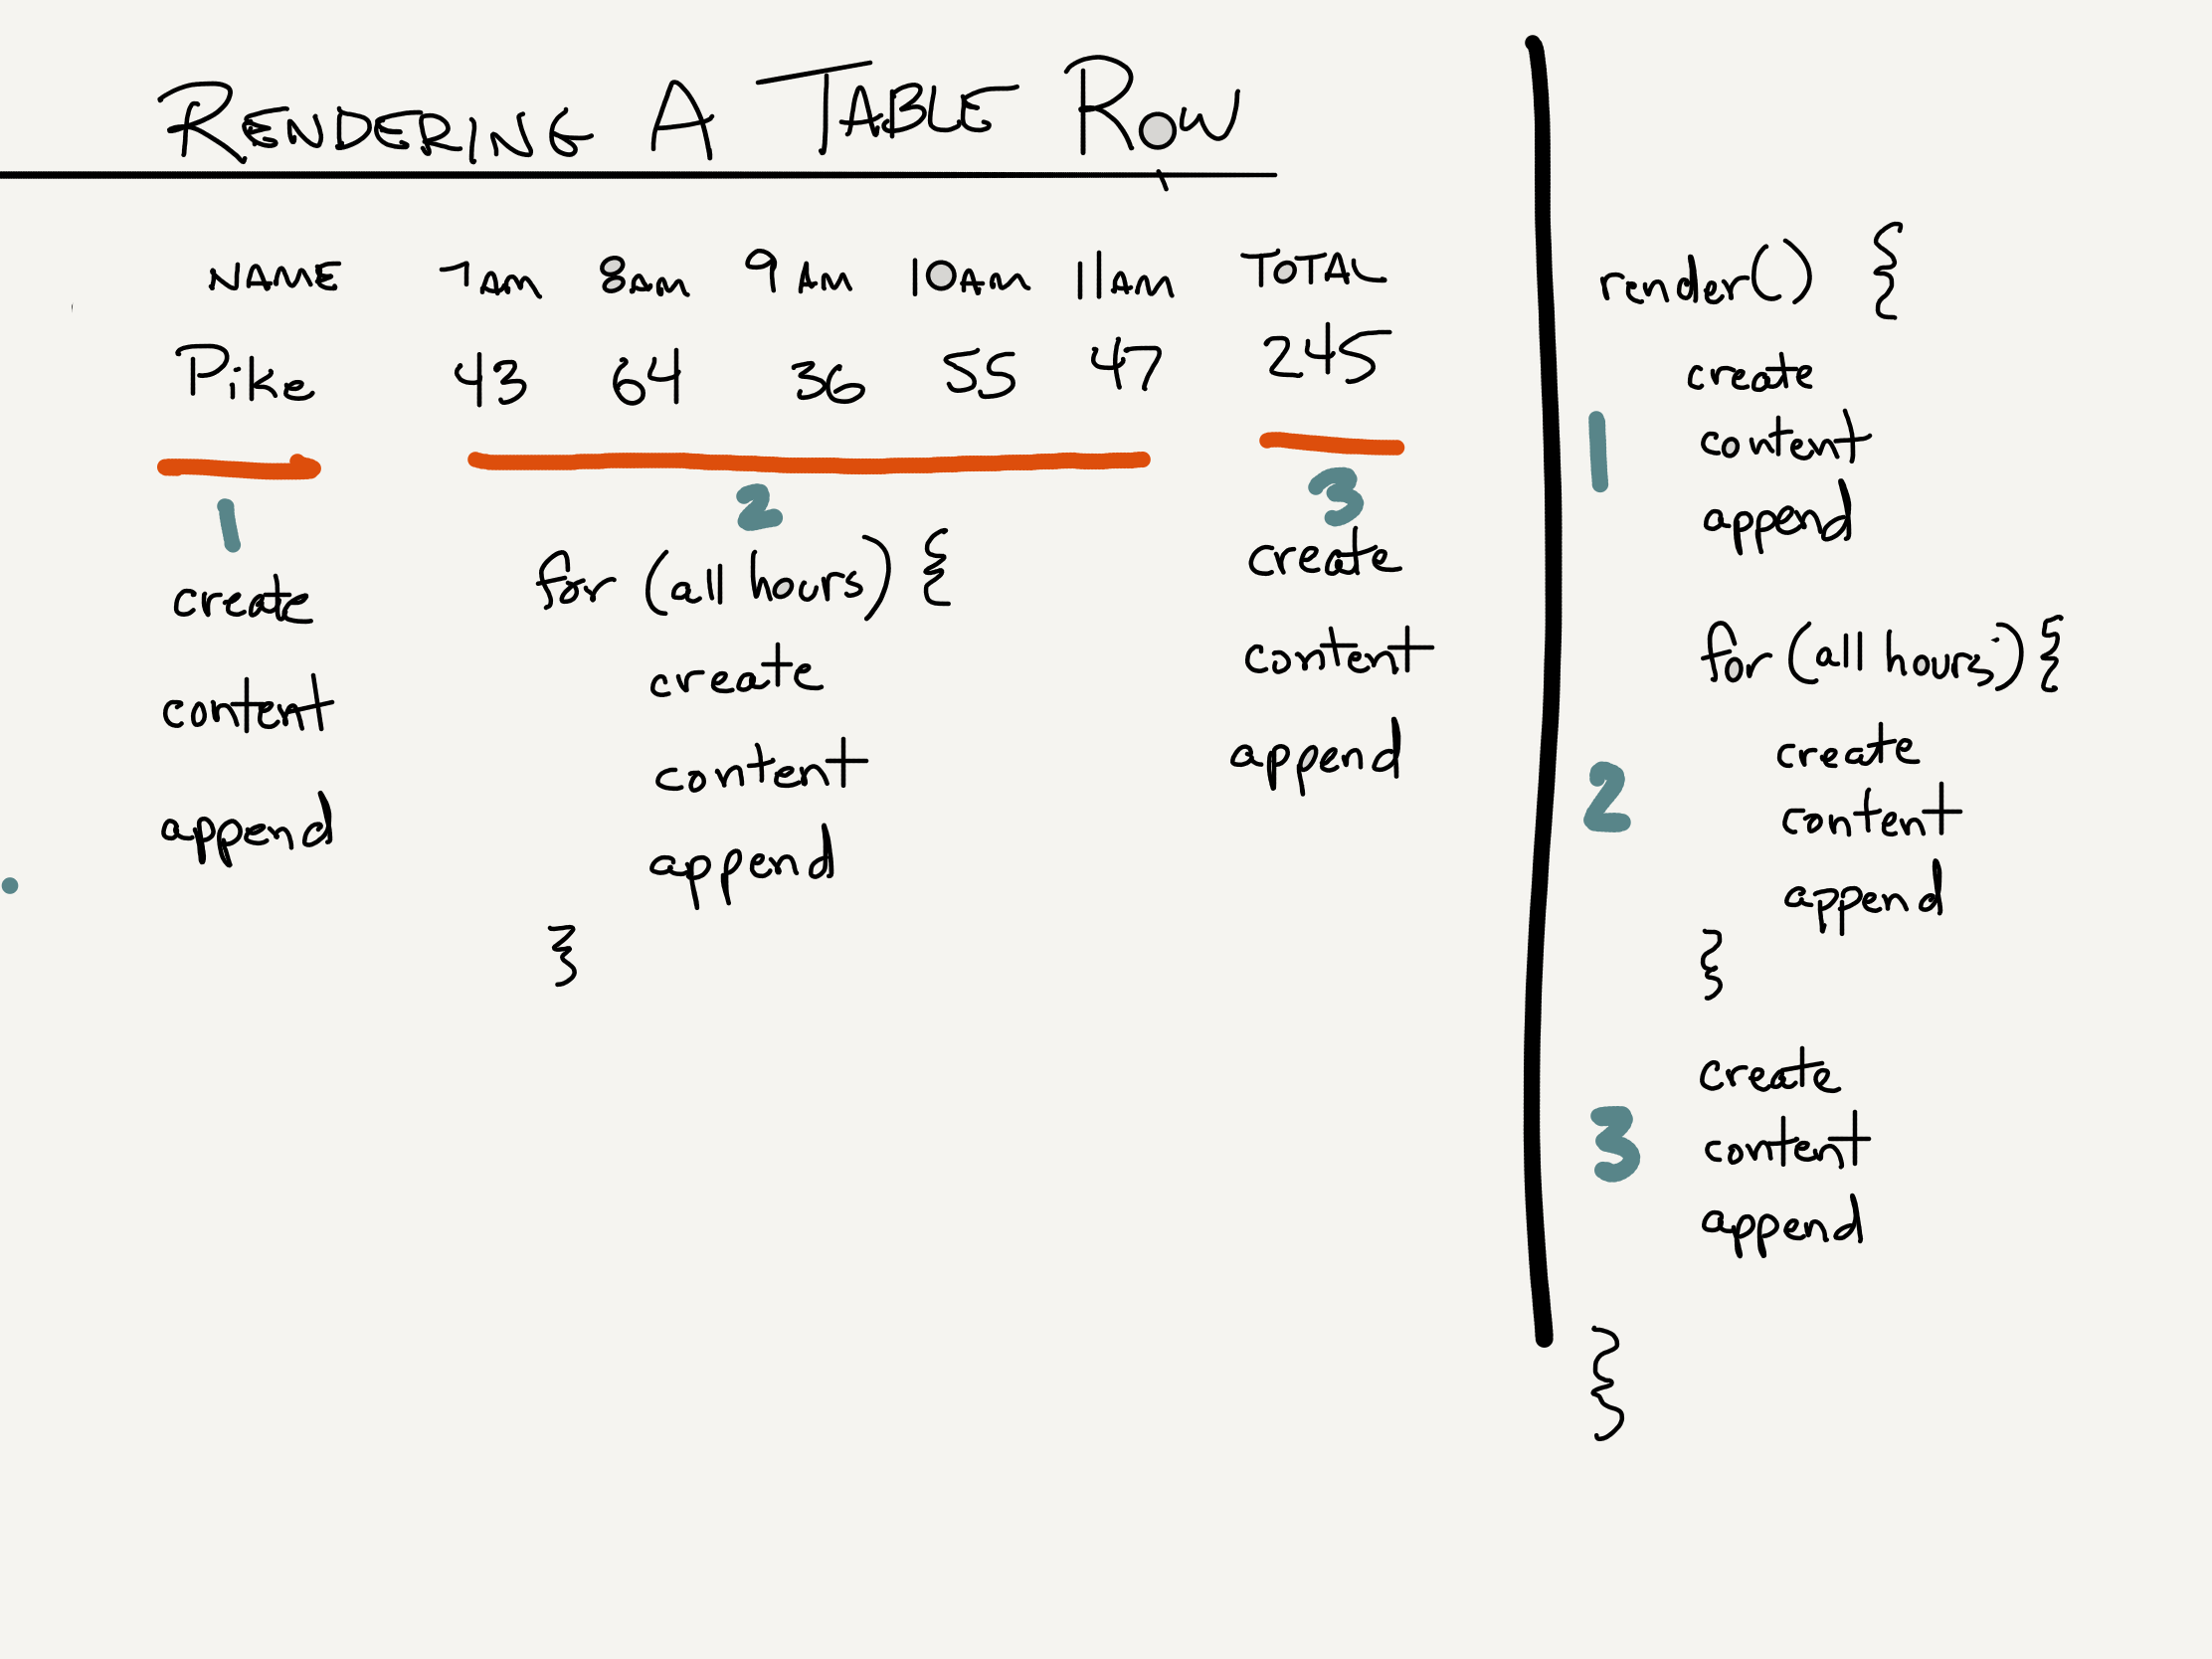 RENDERING A TABLE ROW
NAME 7AM 8AM 9AM 10AM 11AM TOTAL
Pike 43 64 36 55 47 245
1 2 3
create
content
append
for (all hours) {
create
content
append
}
create
content
append
render() {
1
create
content
append
for (all hours) {
2
create
content
append
}
3
create
content
append
}